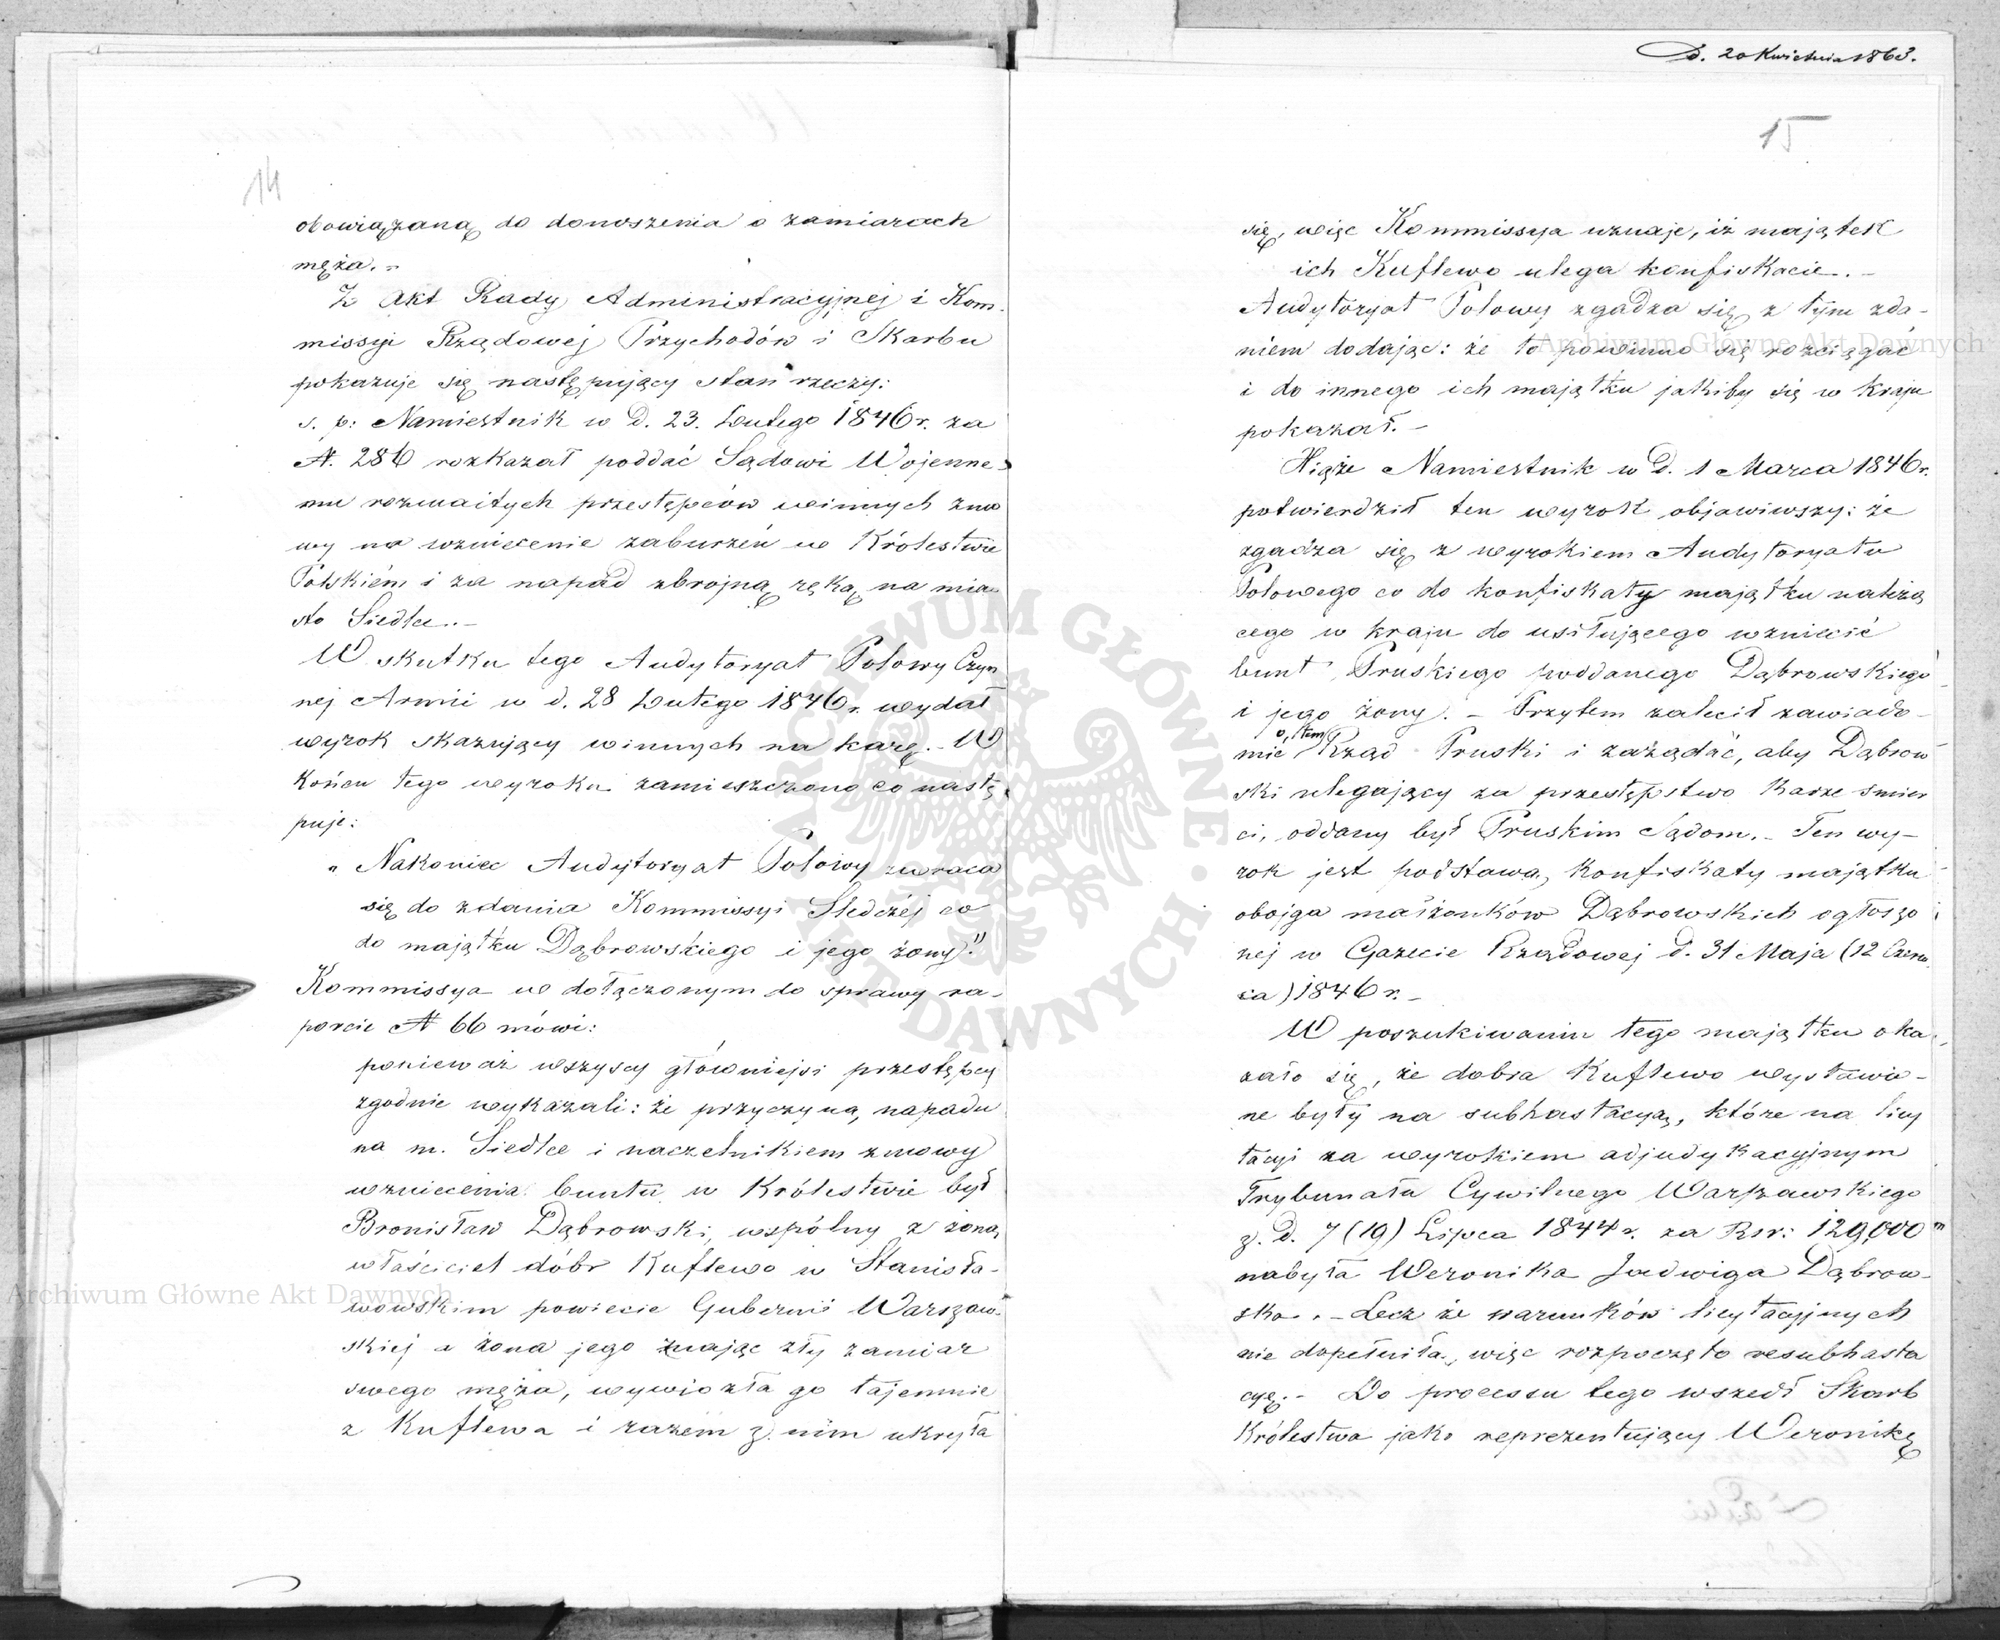 14
obowiązaną do donoszenia o zamiarach
męża. –
Z Akt Rady Administracyjnej i Kom-
missyi Rządowej Przychodów i Skarbu
pokazuje się następujący stan rzeczy:
ś. p: Namiestnik w D. 23. Lutego 1846 r. za
N. 286 rozkazał poddać Sądowi Wojenne-
mu rozmaitych przestępców winnych zmo
wy na wzniecenie zaburzeń w Królestwie
Polskiém i za napad zbrojną ręką na mia-
sto Siedlce. –
W skutku tego Audytoryat Polowy Czyn
nej Armii w d. 28 Lutego 1846 r. wydał
wyrok skazujący winnych na karę. – W
końcu tego wyroku zamieszczono co nastę
puje:
„ Nakoniec Audytoryat Polowy zwraca
się do zdania Kommissyi Śledczéj co
do majątku Dąbrowskiego i jego żony."
Kommissya w dołączonym do sprawy ra-
porcie N 66 mówi:
ponieważ wszyscy główniejsi przestępcy
zgodnie wykazali: że przyczyną napadu
na m. Siedlce i naczelnikiem zmowy
wzniecenia buntu w Królestwie był
Bronisław Dąbrowski, wspólny z żoną
właściciel dóbr Kuflewo w Stanisła-
wowskim powiecie Gubernii Warszaw-
skiéj a żona jego znając zły zamiar
swego męża, wywiozła go tajemnie
z Kuflewa i razem z nim ukryła
D. 20 Kwietnia 1863.
15
się, więc Kommissya uznaje, iż majątek
ich Kuflewo ulega konfiskacie. –
Audytoryat Polowy zgadza się z tym zda-
niem dodając: że to powinno się rozciągać
i do innego ich majątku jakiby się w kraju
pokazał. –
Xiąże Namiestnik w D. 1 Marca 1846 r.
potwierdził ten wyrok objawiwszy: że
zgadza się z wyrokiem Audytoryatu
Polowego co do konfiskaty majątku należą
cego w kraju do usiłującego wzniecić
bunt Pruskiego poddanego Dąbrowskiego
i jego żony. – Przytem zalecił zawiado-
o tem
mić Rząd Pruski i zażądać, aby Dąbrow
ski ulegający za przestępstwo karze śmier
ci, oddany był Pruskim Sądom. – Ten wy-
rok jest podstawą konfiskaty majątku
obojga małżonków Dąbrowskich ogłoszo
nej w Gazecie Rządowej d. 31 Maja (12 Czerw
ca) 1846 r. –
W poszukiwaniu tego majątku oka
zało się, że dobra Kuflewo wystawio-
ne były na subhastacyą, które na licy
tacyi za wyrokiem adjudykacyjnym
Trybunału Cywilnego Warszawskiego
z. D. 7 (19) Lipca 1844 r. za Rsr: 129,000"
nabyła Weronika Jadwiga Dąbrow-
ska. – Lecz że warunków licytacyjnych
nie dopełniła, więc rozpoczęto resubhasta
cyę. – Do processu tego wszedł Skarb
Królestwa jako reprezentujący Weronikę
Archiwum Główne Akt Dawnych
Archiwum Główne Akt Dawnych
ARCHIWUM GŁÓWNE · AKT DAWNYCH ·